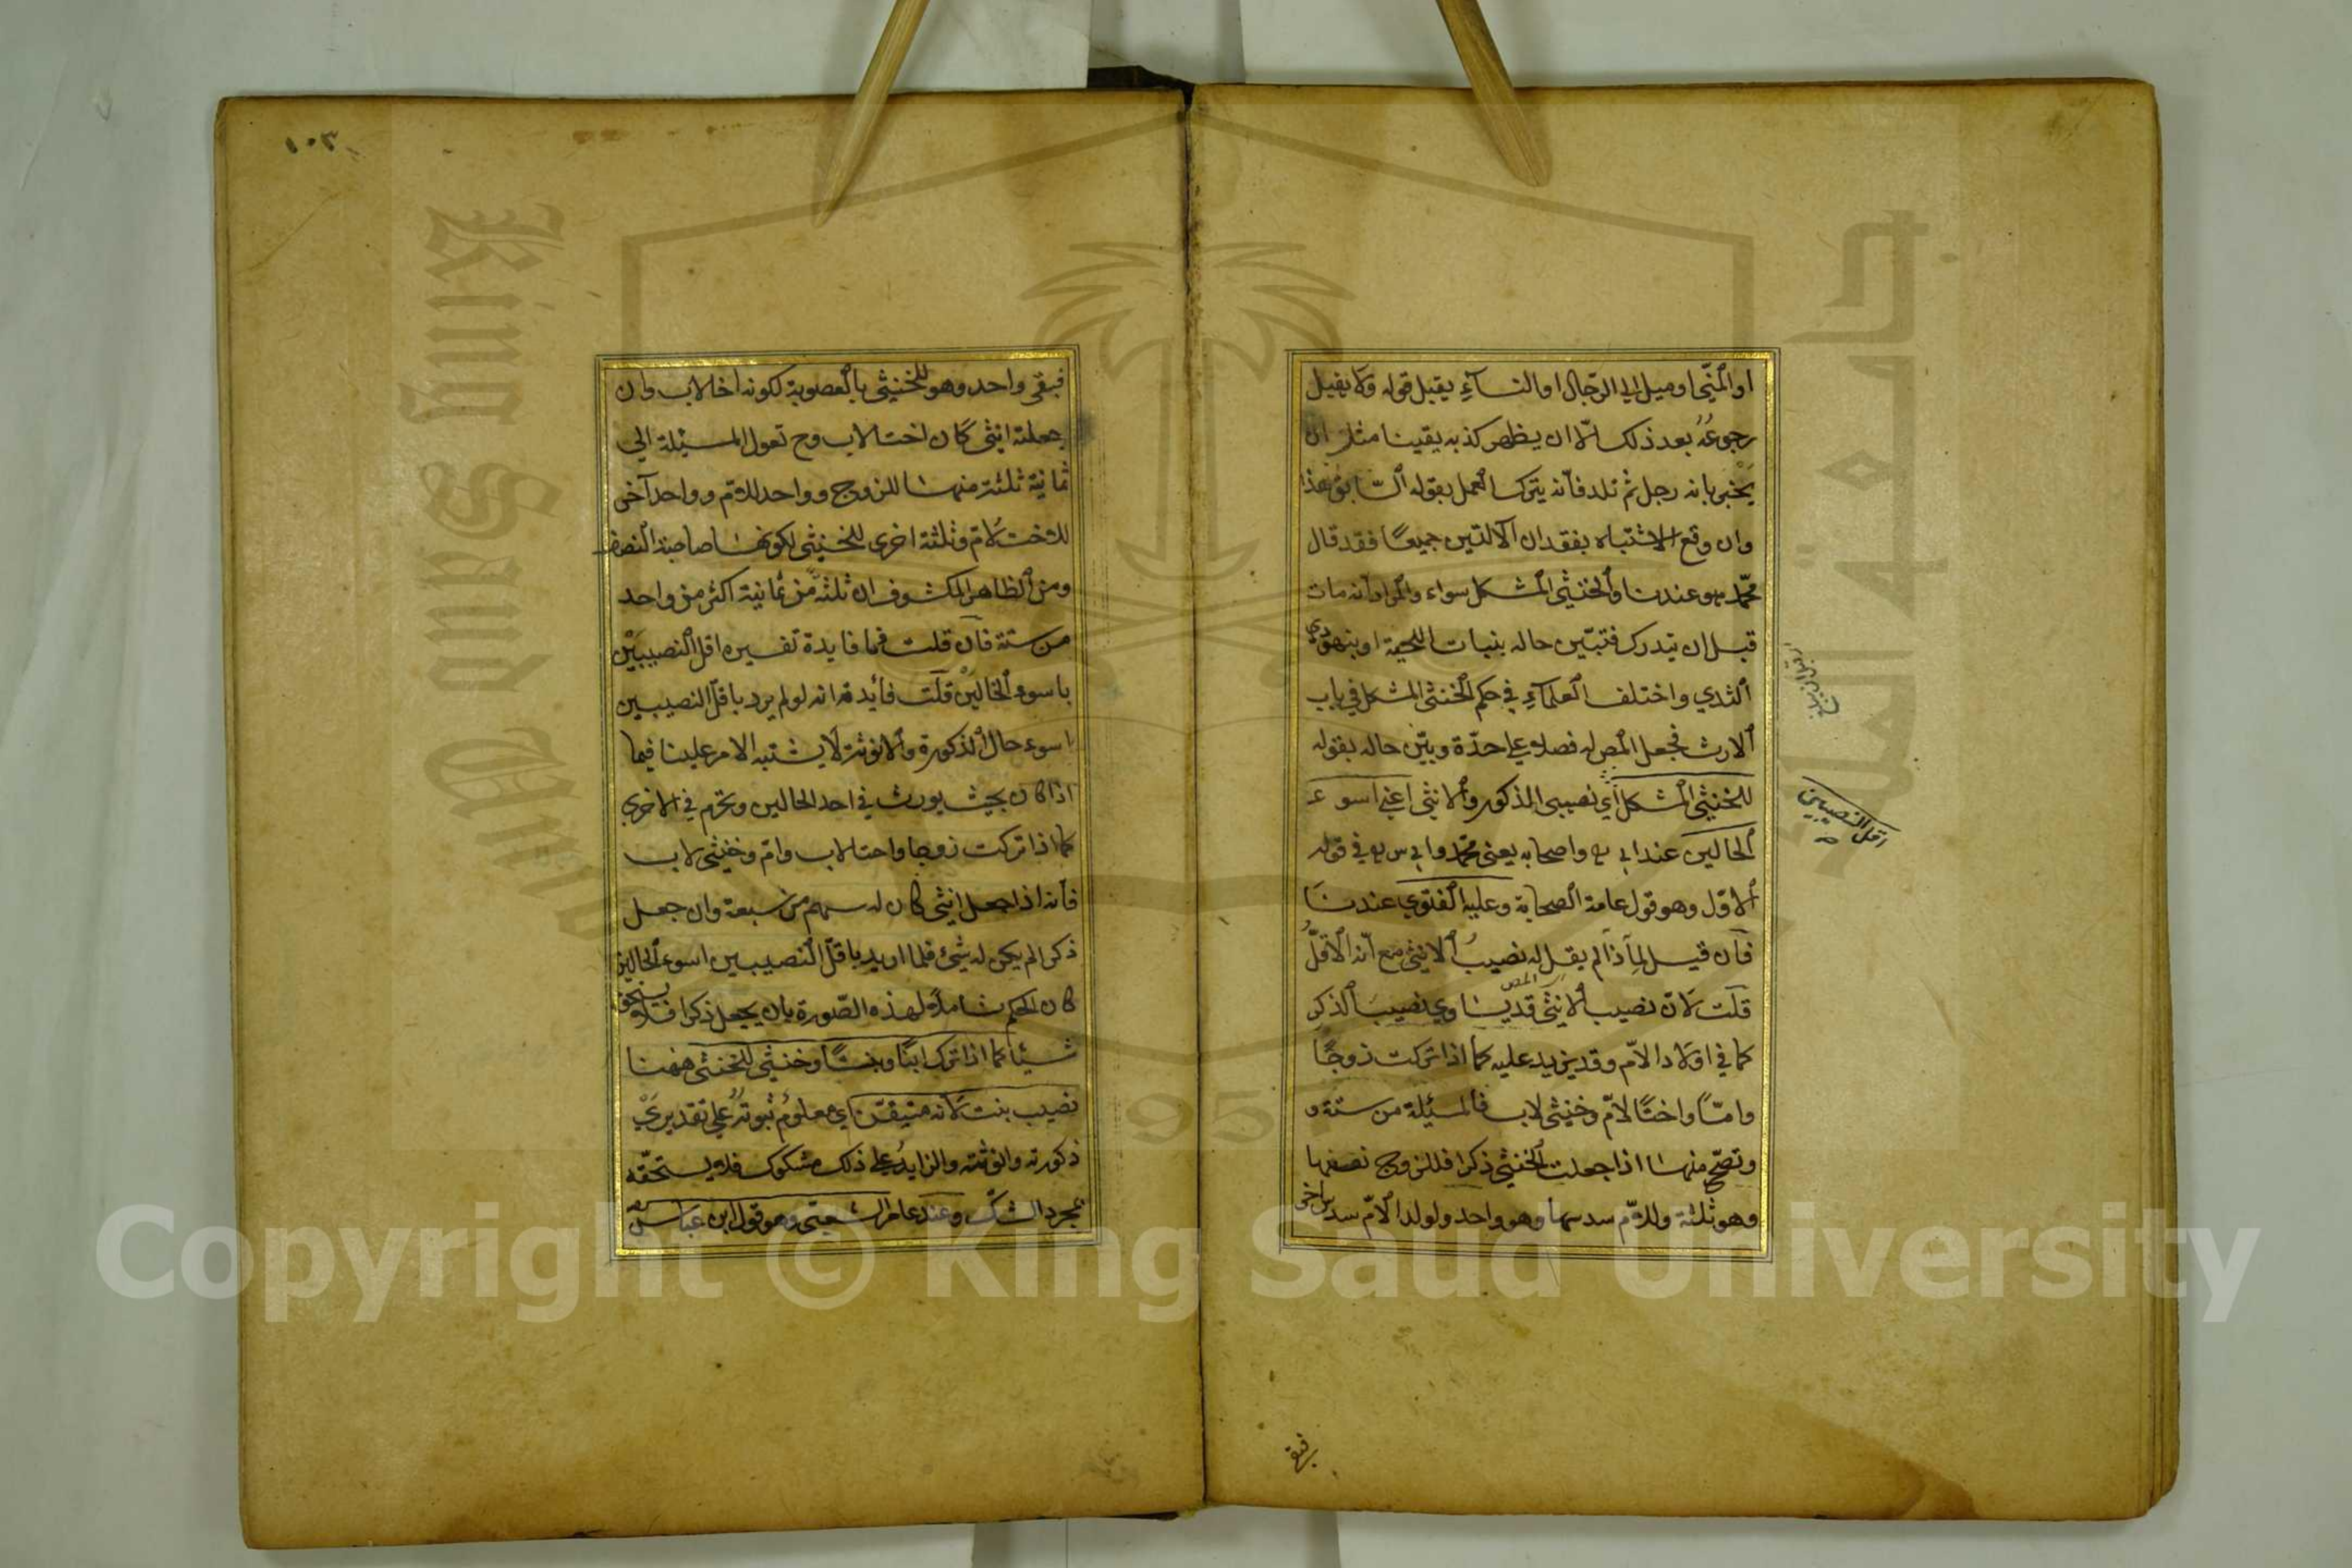 او المنّي او ميل الى الرّجال او النسآءِ يقبل قوله ولا يقبل
رجوعُهُ بعد ذلك الّا ان يظهر كذبه يقينا مثل ان
يخبر بانه رجل ثم تلد فأنه يترك العمل بقوله السّابق هذا
وان وقع الاشتباه بفقدان الآلتين جميعًا فقد قال
محمّد هو عندنا والخنثى المشكل سواء والمراد أنه مات
قبل ان يدرك فتبيّن حاله بنبات اللحية او بنهود
الثدي واختلف العلمآءِ في حكم الخنثى المشكل في باب
الارث فجعل المص له فصلا على حدّة وبيّن حاله بقوله
للخنثى المشكل أي نصيبى المذكور والانثى اعني اسوء
اقل النصيبين
الحالين عند ابي ح واصحابه يعنى محمّد وابى س في قوله
الاوّل وهو قول عامة الصحابة وعليه الفتوى عندنا
فأن قيل لماذا لم يقل له نصيبُ الانثى مع أنّه الاقلُّ
قلت لانّ نصيب الانثى قد يساوى نصيبَ الذكر
كما في اولاد الامّ وقد يزيد عليه كما اذا تركت زوجًا
وامّاً واختًا لامّ وخنثى لاب فالمسئلة من ستة و
وتصحّ منها اذا جعلت الخنثى ذكرا فللزوج نصفها
وهو ثلثة وللامّ سدسها وهو واحد ولولد الامّ سدس اخر
فبقى
١٠٣
فبقى واحد وهو للخنثى بالعصوبة لكونه اخا لاب وان
جعلته انثى كان اختا لاب وح تعول المسئلة الى
ثمانية ثلثة منها للزوج وواحد للامّ وواحد آخر
للاخت لامّ وثلثة اخرى للخنثى لكونها صاحبة النصف
ومن الظاهر المكشوف ان ثلثة من ثمانية اكثر من واحد
من ستة فان قلت فما فايدة تفسيره اقل النصيبين
باسوء الحالين قلت فائدته انه لو لم يرد باقل النصيبين
اسوء حال الذكورة والانوثة لا يشتبه الامر علينا فيما
اذا كان بحيث يورث في احد الحالين ويحرم في الاخرى
كما اذا تركت زوجا واختا لاب وامّ وخنثى لاب
فأنه اذا جعل انثى كان له سهم من سبعة وان جعل
ذكرا لم يكن له شئ فلما اريد باقل النصيبين اسوء الحالين
كان الحكم شاملا لهذه الصّورة بان يجعل ذكرا فلا يستحق
شيئا كما اذا ترك ابنًا وبنتًا وخنثى للخنثى ههنا
نصيب بنت لانه متيقّن اي معلومُ ثبوتهُ على تقديرى
ذكورته وانوثته والزايدُ على ذلك مشكوك فلا يستحقّه
بمجرد الشك وعند عامر الشعبى وهو قول ابن عباس